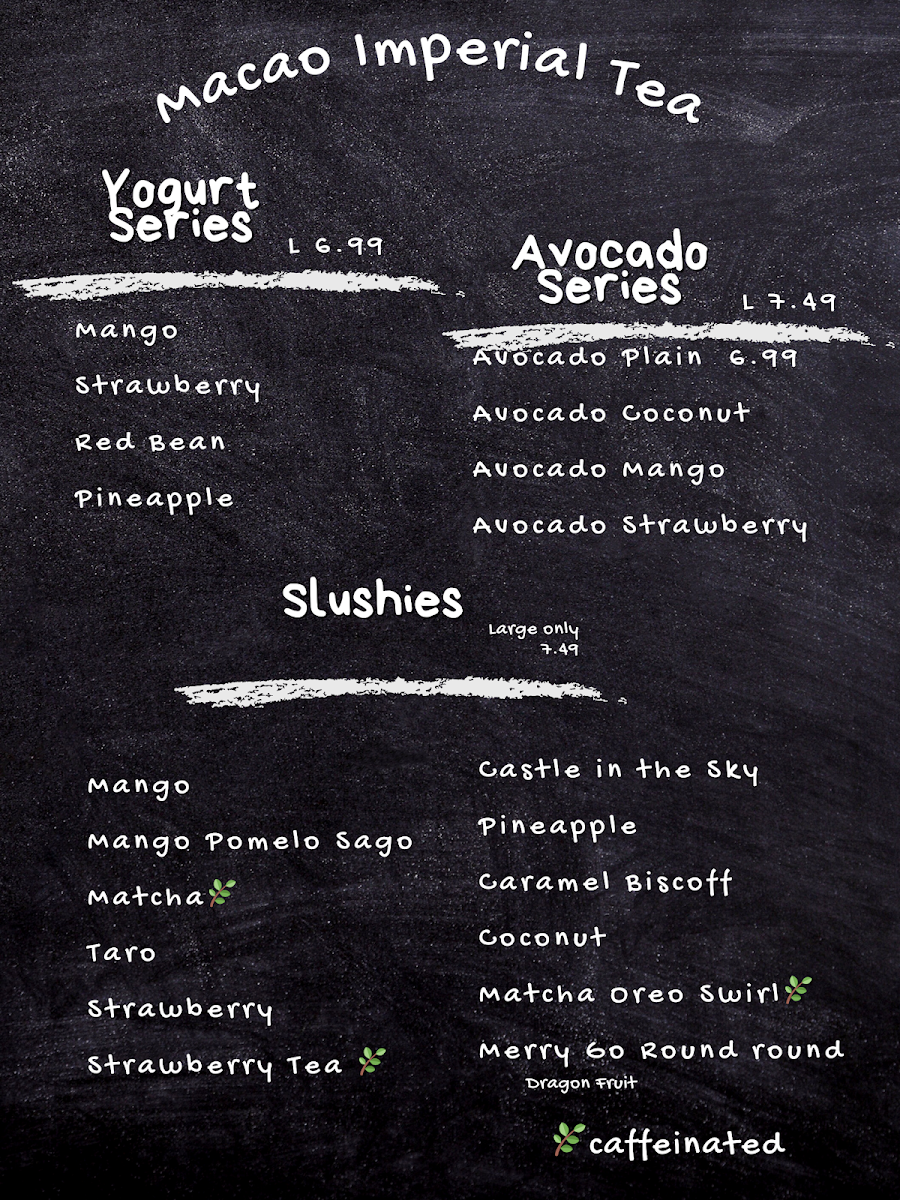 Macao Imperial Tea
Yogurt
Series
L 6.99
Mango
Strawberry
Red Bean
Pineapple
Avocado
Series
L 7.49
Avocado Plain 6.99
Avocado Coconut
Avocado Mango
Avocado Strawberry
Slushies
Large only
7.49
Mango
Mango Pomelo Sago
Matcha🌿
Taro
Strawberry
Strawberry Tea 🌿
Castle in the Sky
Pineapple
Caramel Biscoff
Coconut
Matcha Oreo Swirl🌿
Merry Go Round round
Dragon Fruit
🌿caffeinated